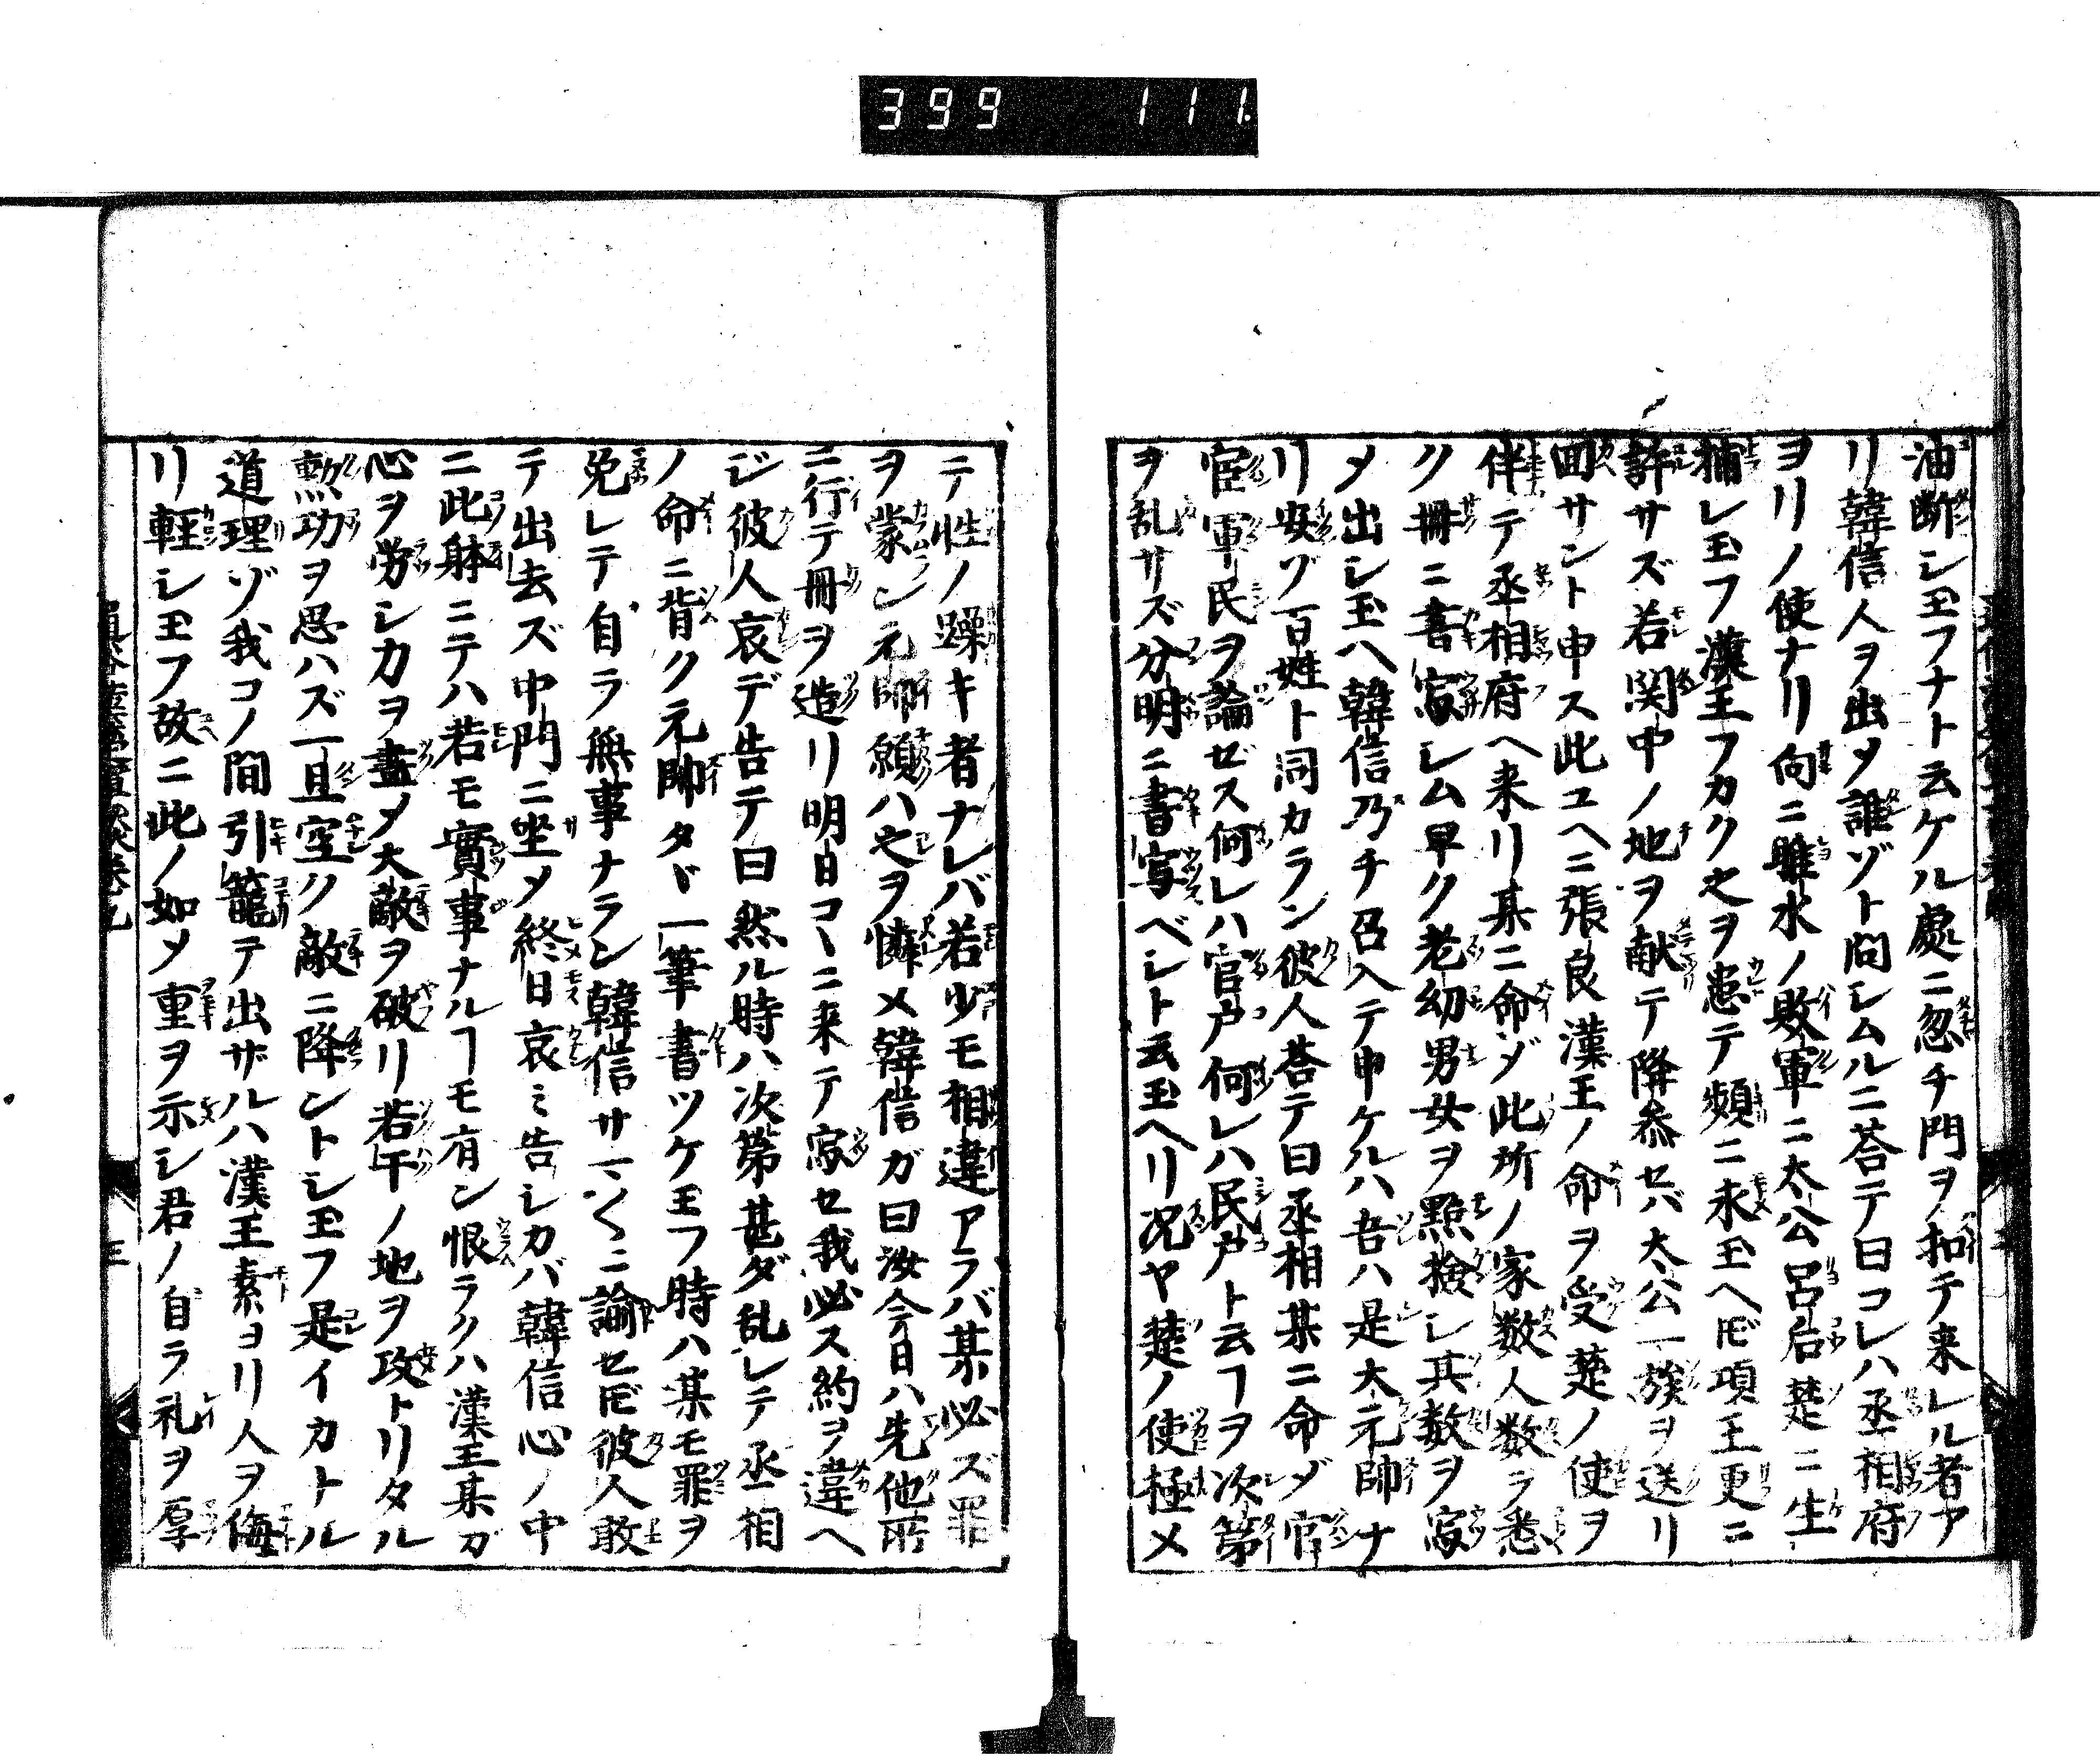 399 111.
油断シ玉フナト云ケル處ニ忽チ門ヲ扣テ来レル者ア
リ韓信人ヲ出メ誰ゾト問シムルニ荅テ曰コレハ丞相府
ヨリノ使ナリ向ニ睢水ノ敗軍ニ太公呂后楚ニ生
捕レ玉フ漢王フカク之ヲ患テ頻ニ求玉ヘ𪜈項王更ニ
許サズ若関中ノ地ヲ献テ降参セバ太公一族ヲ送リ
囬サント申ス此ユヘニ張良漢王ノ命ヲ受楚ノ使ヲ
伴テ丞相府ヘ来リ某ニ命ゾ此所ノ家数人数ヲ悉
ク冊ニ書寫シム早ク老幼男女ヲ㸃撿シ其数ヲ寫
メ出シ玉ヘ韓信乃チ召入テ申ケルハ吾ハ是大元帥ナ
リ安ゾ百姓ト同カラン彼人荅テ曰丞相某ニ命ゾ官
宦軍民ヲ論ゼス何レハ官戸何レハ民戸ト云ヿヲ次第
ヲ乱サズ分明ニ書写ベシト云玉ヘリ况ヤ楚ノ使極メ
テ性ノ躁キ者ナレバ若少モ相違アラバ某必ズ罪
ヲ蒙ン元帥願ハ之ヲ憐メ韓信ガ曰汝今日ハ先他所
ニ行テ冊ヲ造リ明日コヽニ来テ寫セ我必ス約ヲ違ヘ
ジ彼人哀デ告テ曰然ル時ハ次第甚ダ乱レテ丞相
ノ命ニ背ク元帥タヾ一筆書ツケ玉フ時ハ某モ罪ヲ
免レテ自ラ無事ナラン韓信サマ〴〵ニ諭セ𪜈彼人敢
テ出去ズ中門ニ坐メ終日哀ミ告シカバ韓信心ノ中
ニ此躰ニテハ若モ實事ナルヿモ有ン恨ラクハ漢王某ガ
心ヲ労シカヲ盡メ大敵ヲ破リ若干ノ地ヲ攻トリタル
勲功ヲ思ハズ一旦空ク敵ニ降ントシ玉フ是イカトル
道理ゾ我コノ間引籠テ出ザルハ漢王素ヨリ人ヲ侮
リ軽シ玉フ故ニ此ノ如メ重ヲ示シ君ノ自ラ礼ヲ厚